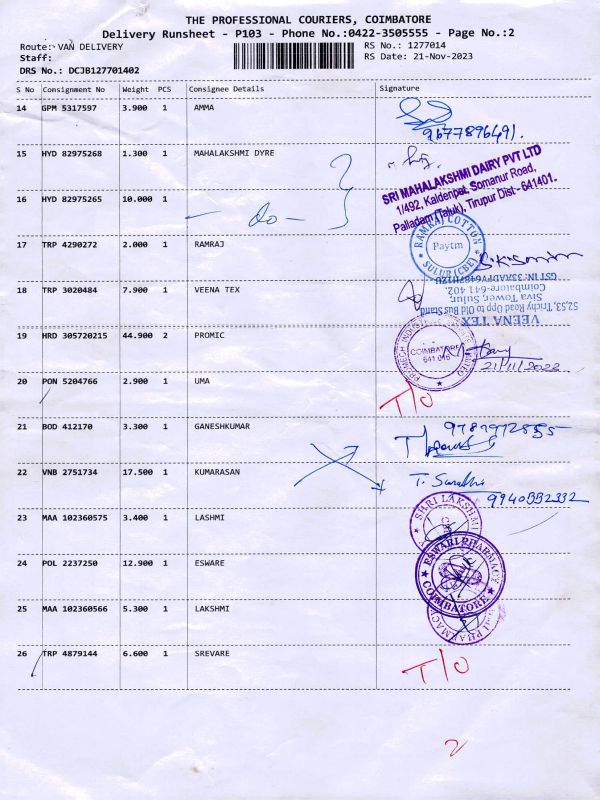 THE PROFESSIONAL COURIERS, COIMBATORE
Delivery Runsheet - P103 - Phone No.:0422-3505555 - Page No.:2
Route: VAN DELIVERY
RS No.: 1277014
Staff:
RS Date: 21-Nov-2023
DRS No.: DCJB127701402
S No Consignment No Weight PCS Consignee Details Signature
14 GPM 5317597 3.900 1 AMMA
9677896491.
15 HYD 82975268 1.300 1 MAHALAKSHMI DYRE
SRI MAHALAKSHMI DAIRY PVT LTD
1/492, Kaldenpet, Somanur Road,
Palladam (Taluk), Tirupur Dist - 641401.
16 HYD 82975265 10.000 1
- do -
17 TRP 4290272 2.000 1 RAMRAJ
RAMRAJ COTTON
Paytm
SULUR (CBE)
18 TRP 3020484 7.900 1 VEENA TEX
VEENA TEX
52,53, Trichy Road Opp Old to Bus Stand
Siva Tower, Sulur,
Coimbatore-641 402.
19 HRD 305720215 44.900 2 PROMIC
COIMBATORE
641 016
21/11/2022
20 PON 5204766 2.900 1 UMA
T/O
21 BOD 412170 3.300 1 GANESHKUMAR
22 VNB 2751734 17.500 1 KUMARASAN
9940552332
23 MAA 102360575 3.400 1 LASHMI
SHRI LAKSHMI
24 POL 2237250 12.900 1 ESWARE
ESWARI PHARMACY
COIMBATORE
25 MAA 102360566 5.300 1 LAKSHMI
PHARMACY
26 TRP 4879144 6.600 1 SREVARE
T/O
2